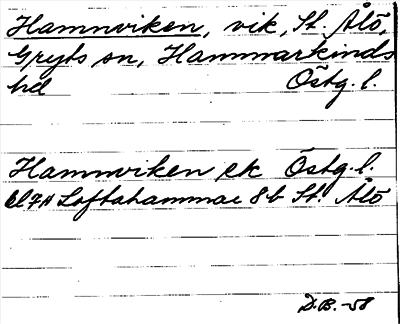 Hamnviken, vik, St. Ålö,
Gryts sn, Hammarkinds
hd Östg. l.
Hamnviken ek Östg. l.
Loftahammar 8b St. Ålö
D.B. -58